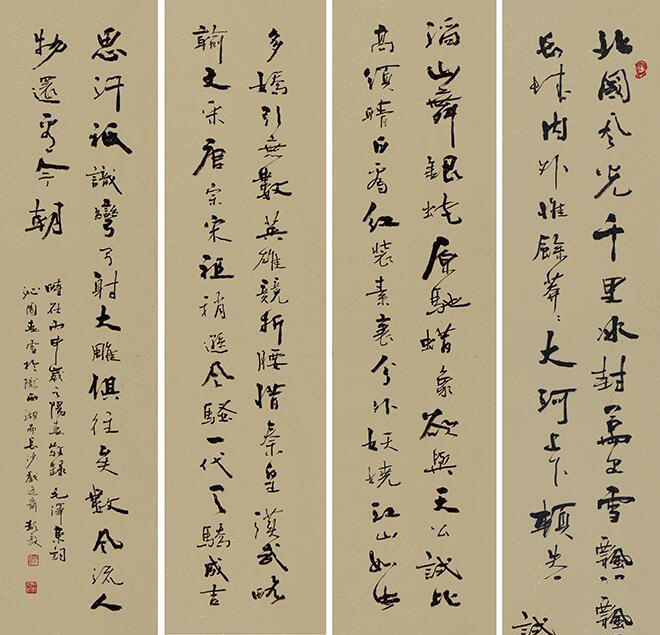 北國风光千里冰封萬里雪飄
長城内外惟餘莽〻大河上下頓失
滔山舞銀蛇原馳蜡象欲與天公試比
高須晴日看红裝素裹分外妖嬈江山如此
多嬌引無數英雄競折腰惜秦皇漢武略
輸文采唐宗宋祖稍遜风騷一代天驕成吉
思汗祇識彎弓射大雕俱往矣數风流人
物還看今朝
時在丙申歲之陽春敬錄毛澤東詞
沁園春雪於隴西湖南長沙